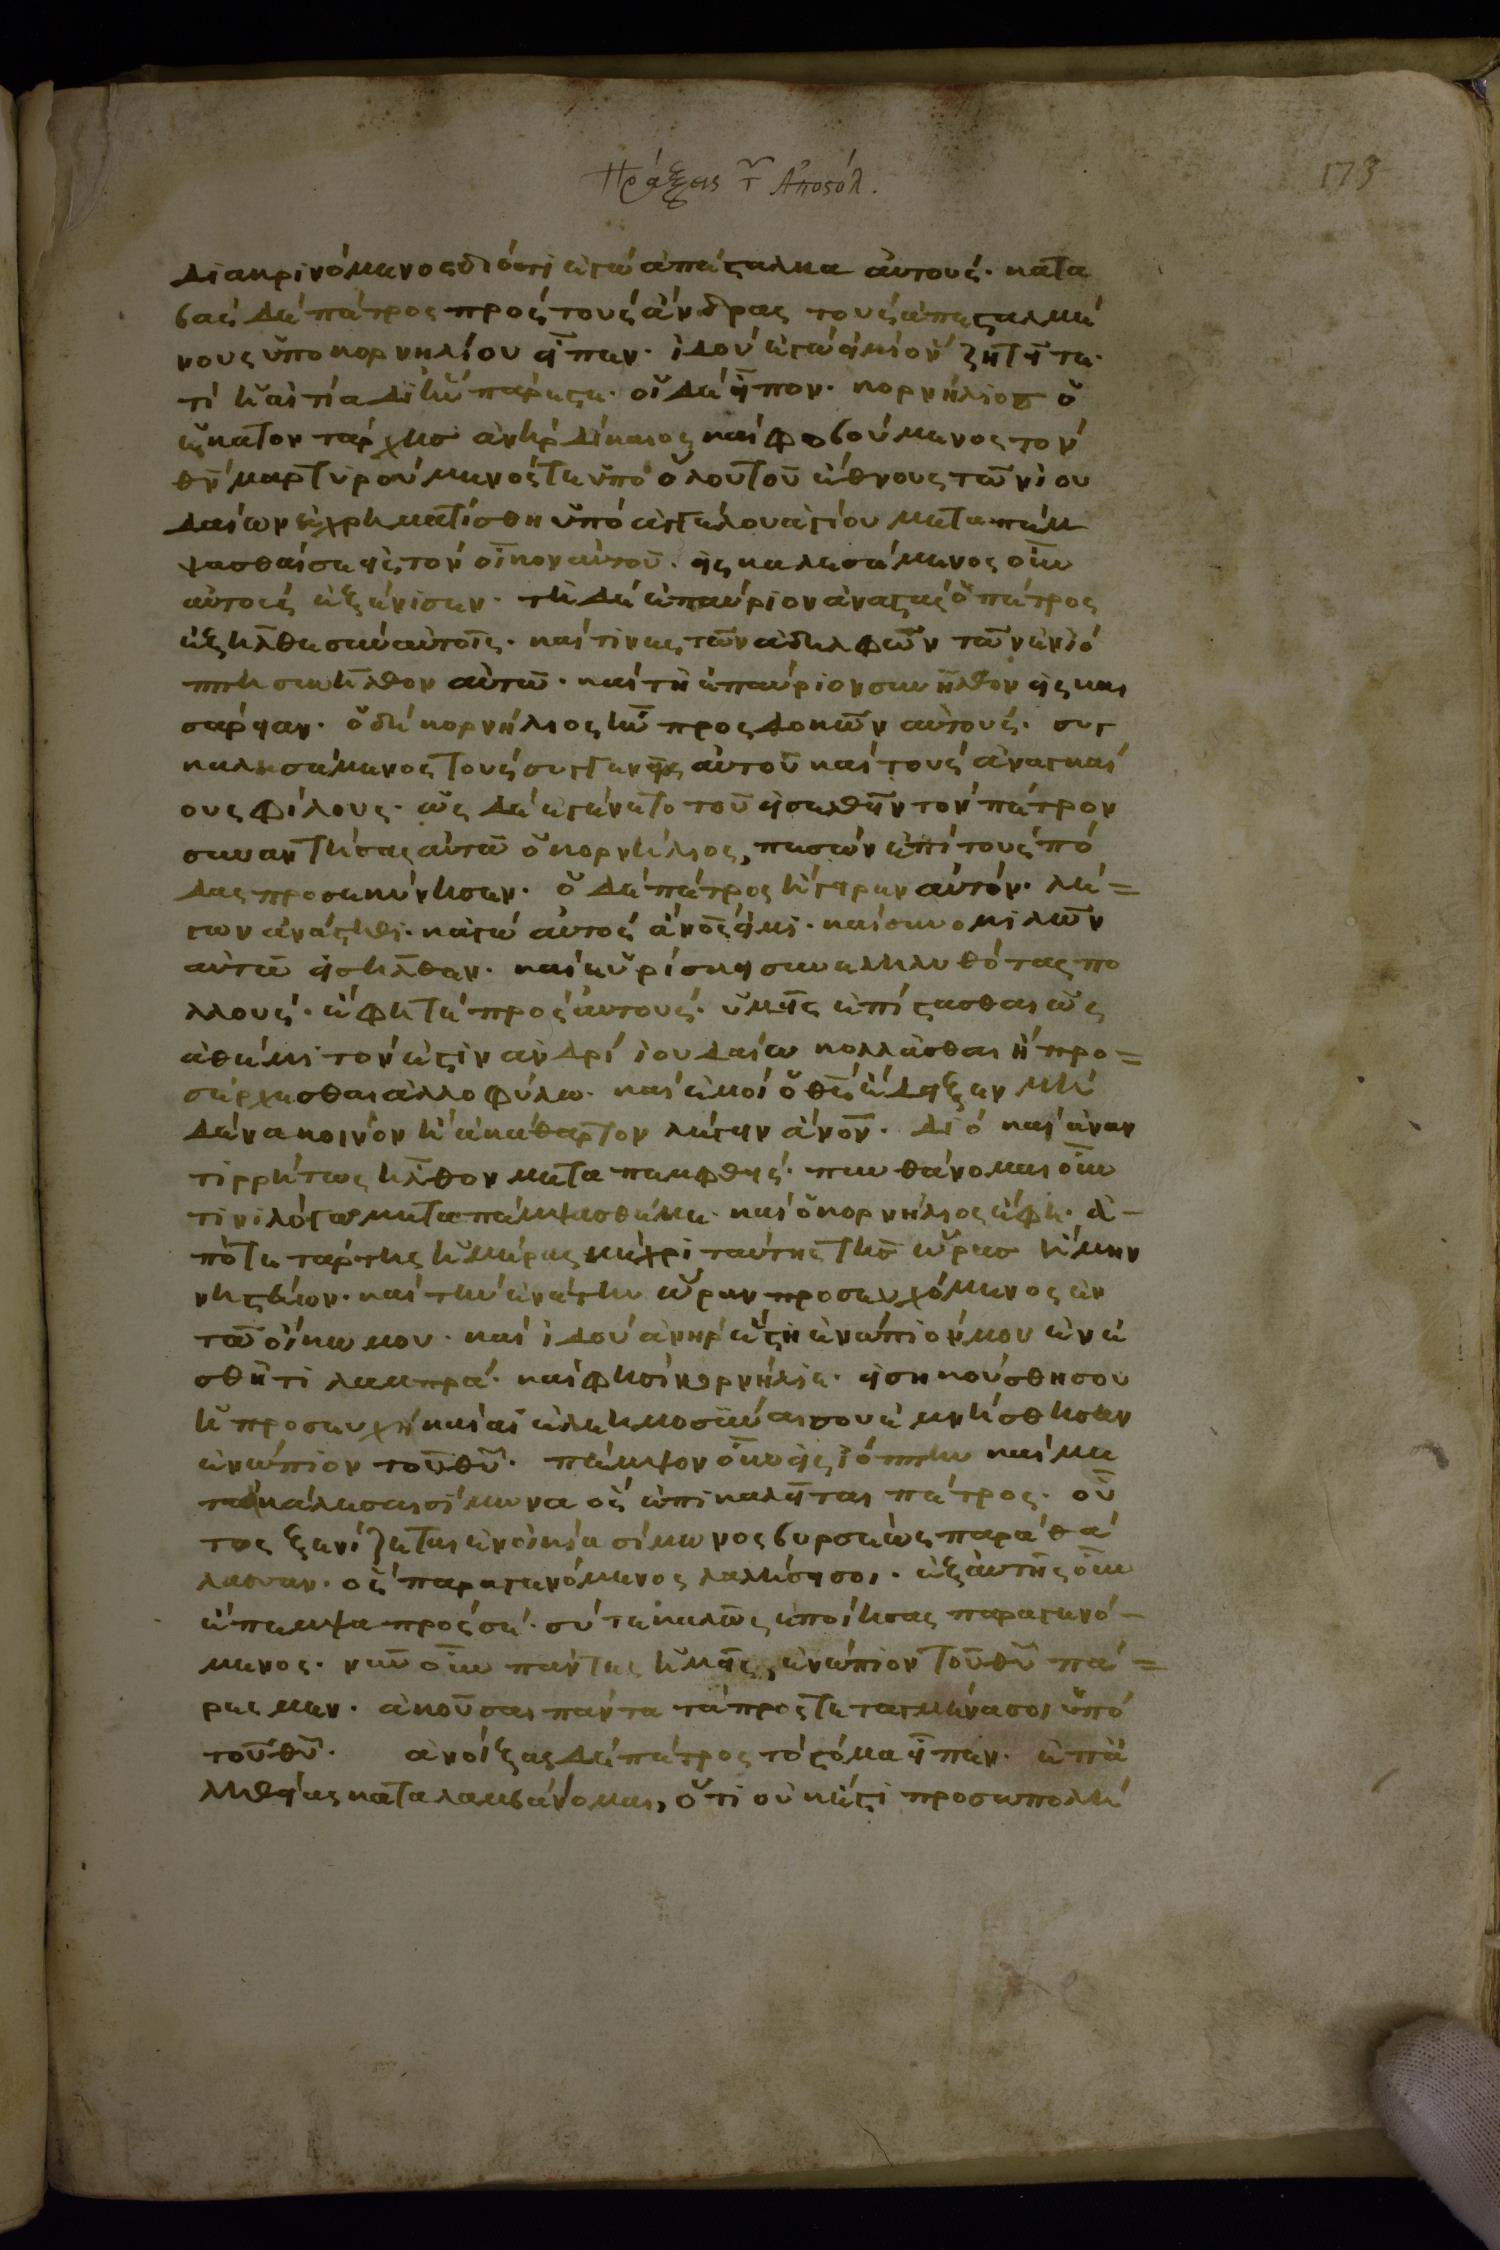 Πράξεις τ̃ Ἀποστόλ.
173
διακρινόμενος διότι ἐγὼ ἀπέσταλκα ἀυτούς· κατα
βὰς δὲ πέτρος πρὸς τοὺς ἄνδρας τοὺς ἀπεσταλμέ
νους ὑπο κορνηλίου εἶπεν· ἰδοὺ ἐγώ εἰμι ὃν ζητεῖτε·
τί ἡ αἰτία δι ἣν πάρεστε· οἱ δὲ εἶπον· κορνήλιος ὁ
ἑκατοντάρχης ἀνὴρ δίκαιος καὶ φοβούμενος τὸν
θν̄ μαρτυρούμενός τε ὑπὸ ὅλου τοῦ ἔθνους τῶν ἰου
δαίων ἐχρηματίσθη ὑπὸ ἀγγέλου ἁγίου μεταπέμ
ψασθαί σε εἰς τὸν οἶκον αὐτοῦ· εἰσκαλεσάμενος οὖν
αὐτοὺς ἐξένισεν· τῆ δὲ ἐπαύριον ἀναστὰς ὁ πέτρος
ἐξῆλθε σὺν αὐτοῖς· καί τινες τῶν ἀδελφῶν τῶν ἐν ἰό
ππη συνῆλθον αὐτῶ· καὶ τῆ ἐπαύριον συνῆλθον εἰς και
σάρειαν· ὁ δὲ κορνήλιος ἦν προσδοκῶν αὐτούς· συγ
καλεσάμενος τοὺς συγγενεῖς αὐτοῦ καὶ τοὺς ἀναγκαί
ους φίλους· ὡς δὲ ἐγένετο τοῦ εἰσελθεῖν τὸν πέτρον
συναντήσας αὐτῶ ὁ κορνήλιος, πεσὼν ἐπὶ τοὺς πό
δας προσεκύνησεν· ὁ δὲ πέτρος ἤγειρεν αὐτόν· λέ=
γων ἀνάστηθι· κἀγὼ ἀυτὸς ἄνος̄ εἰμι· καὶ συνομιλῶν
αὐτῶ εἰσῆλθεν· καὶ εὑρίσκει συνεληλυθότας πο
λλούς· ἔφη τε πρὸς ἀυτούς· ὑμεῖς ἐπίστασθαι ὡς
ἀθέμιτόν ἐστιν ἀνδρὶ ἰουδαίω κολλᾶσθαι ἢ προ=
σέρχεσθαι ἀλλοφύλω· καὶ ἐμοὶ ὁ θς̄ ἔδειξεν μη
δένα κοινὸν ἢ ἀκάθαρτον λέγειν ἄνον̄· διὸ καὶ ἀναν
τιρρήτως ἦλθον μεταπεμφθείς· πυνθάνομαι οὖν
τίνι λόγω μεταπέμψασθέ με· καὶ ὁ κορνήλιος ἔφη· ἀ-
πὸ τετάρτης ἡμέρας μέχρι ταύτης τῆς ὥρας ἤμην
νηστεύων· καὶ τὴν ἐνάτην ὥραν προσευχόμενος ἐν
τῶ οἴκω μου· καὶ ἰδοὺ ἀνὴρ ἔστη ἐνώπιόν μου ἐν ἐ
σθῆτι λαμπρᾶ· καὶ φησὶ κορνήλιε· εἰσηκούσθη σου
ἡ προσευχὴ καὶ αἱ ἐλεημοσύναι σου ἐμνήσθησαν
ἐνώπιον τοῦ θῡ· πέμψον οὖν εἰς ἰόππην καὶ με
τακάλεσαι σίμωνα ὃς ἐπικαλεῖται πέτρος· οὗ
τος ξενίζεται ἐν οἰκία σίμωνος βυρσέως παρὰ θά
λασσαν· ὃς παραγενόμενος λαλήσει σοι· ἐξ ἀυτῆς οὖν
ἔπεμψα πρὸς σέ· σύ τε καλῶς ἐποίησας παραγενό-
μενος· νῦν οὖν πάντες ἡμεῖς, ἐνώπιον τοῦ θῡ πά=
ρεσμεν· ἀκοῦσαι πάντα τὰ προστεταγμένα σοι ὑπὸ
τοῦ θῡ· ἀνοίξας δὲ πέτρος τὸ στόμα εἶπεν· ἐπ ἀ
ληθείας καταλαμβάνομαι, ὅτι οὐκ ἔστι προσωπολή